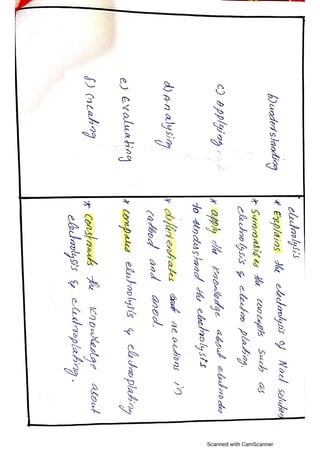 electrolysis
b) understanding
* Explains the electrolysis of Nacl solution
* Summarises the concepts such as
electrolysis & electro plating.
c) Applying
* apply the knowledge about electrodes
to understand the electrolysis
d) Analysing
* differentiates reactions in
cathod and anod.
e) Evaluating
* compares electrolysis & electroplating
f) Creating
* constructs the knowledge about
electrolysis & electroplating.
Scanned with CamScanner